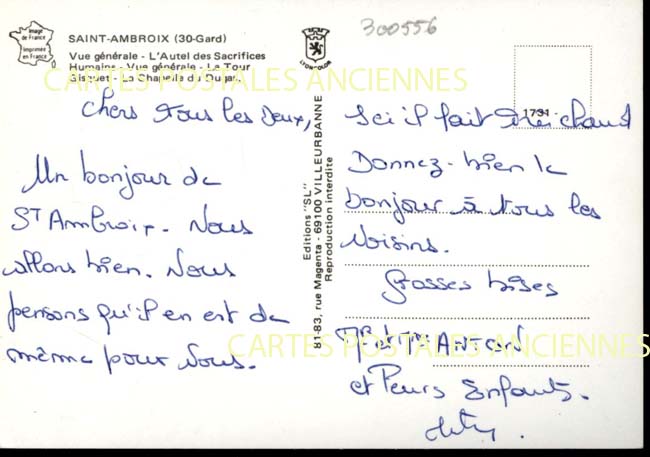 Image
de France
Imprimée
en France
SAINT-AMBROIX (30-Gard)
Vue générale - L'Autel des Sacrifices
Humains - Vue générale - La Tour
Gisquet - La Chapelle du Dujas
LYON-COLOR
300556
1731
CARTES POSTALES ANCIENNES
Chers tous les deux,
Un bonjour de
ST Ambroix. Nous
allons bien. Nous
pensons qu'il en est de
même pour vous.
Editions "SL"
81-83, rue Magenta - 69100 VILLEURBANNE
Reproduction interdite
Ici il fait très chaud
Donnez-bien le
bonjour à tous les
Voisins.
Grosses bises
Mr et Mme ANTON
et leurs Enfants.
CARTES POSTALES ANCIENNES